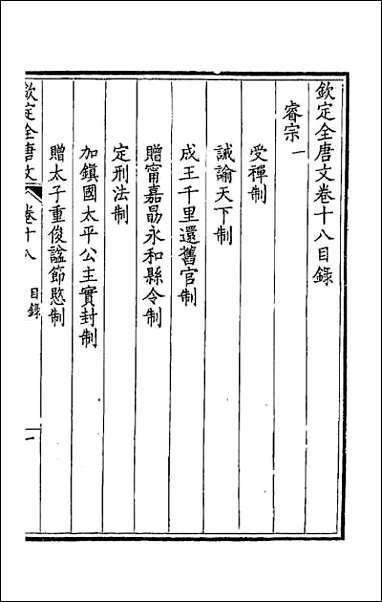 欽定全唐文卷十八目錄
睿宗一
受禪制
誡諭天下制
成王千里還舊官制
贈甯嘉勗永和縣令制
定刑法制
加鎮國太平公主實封制
贈太子重俊諡節愍制
欽定全唐文 卷十八 目錄 一